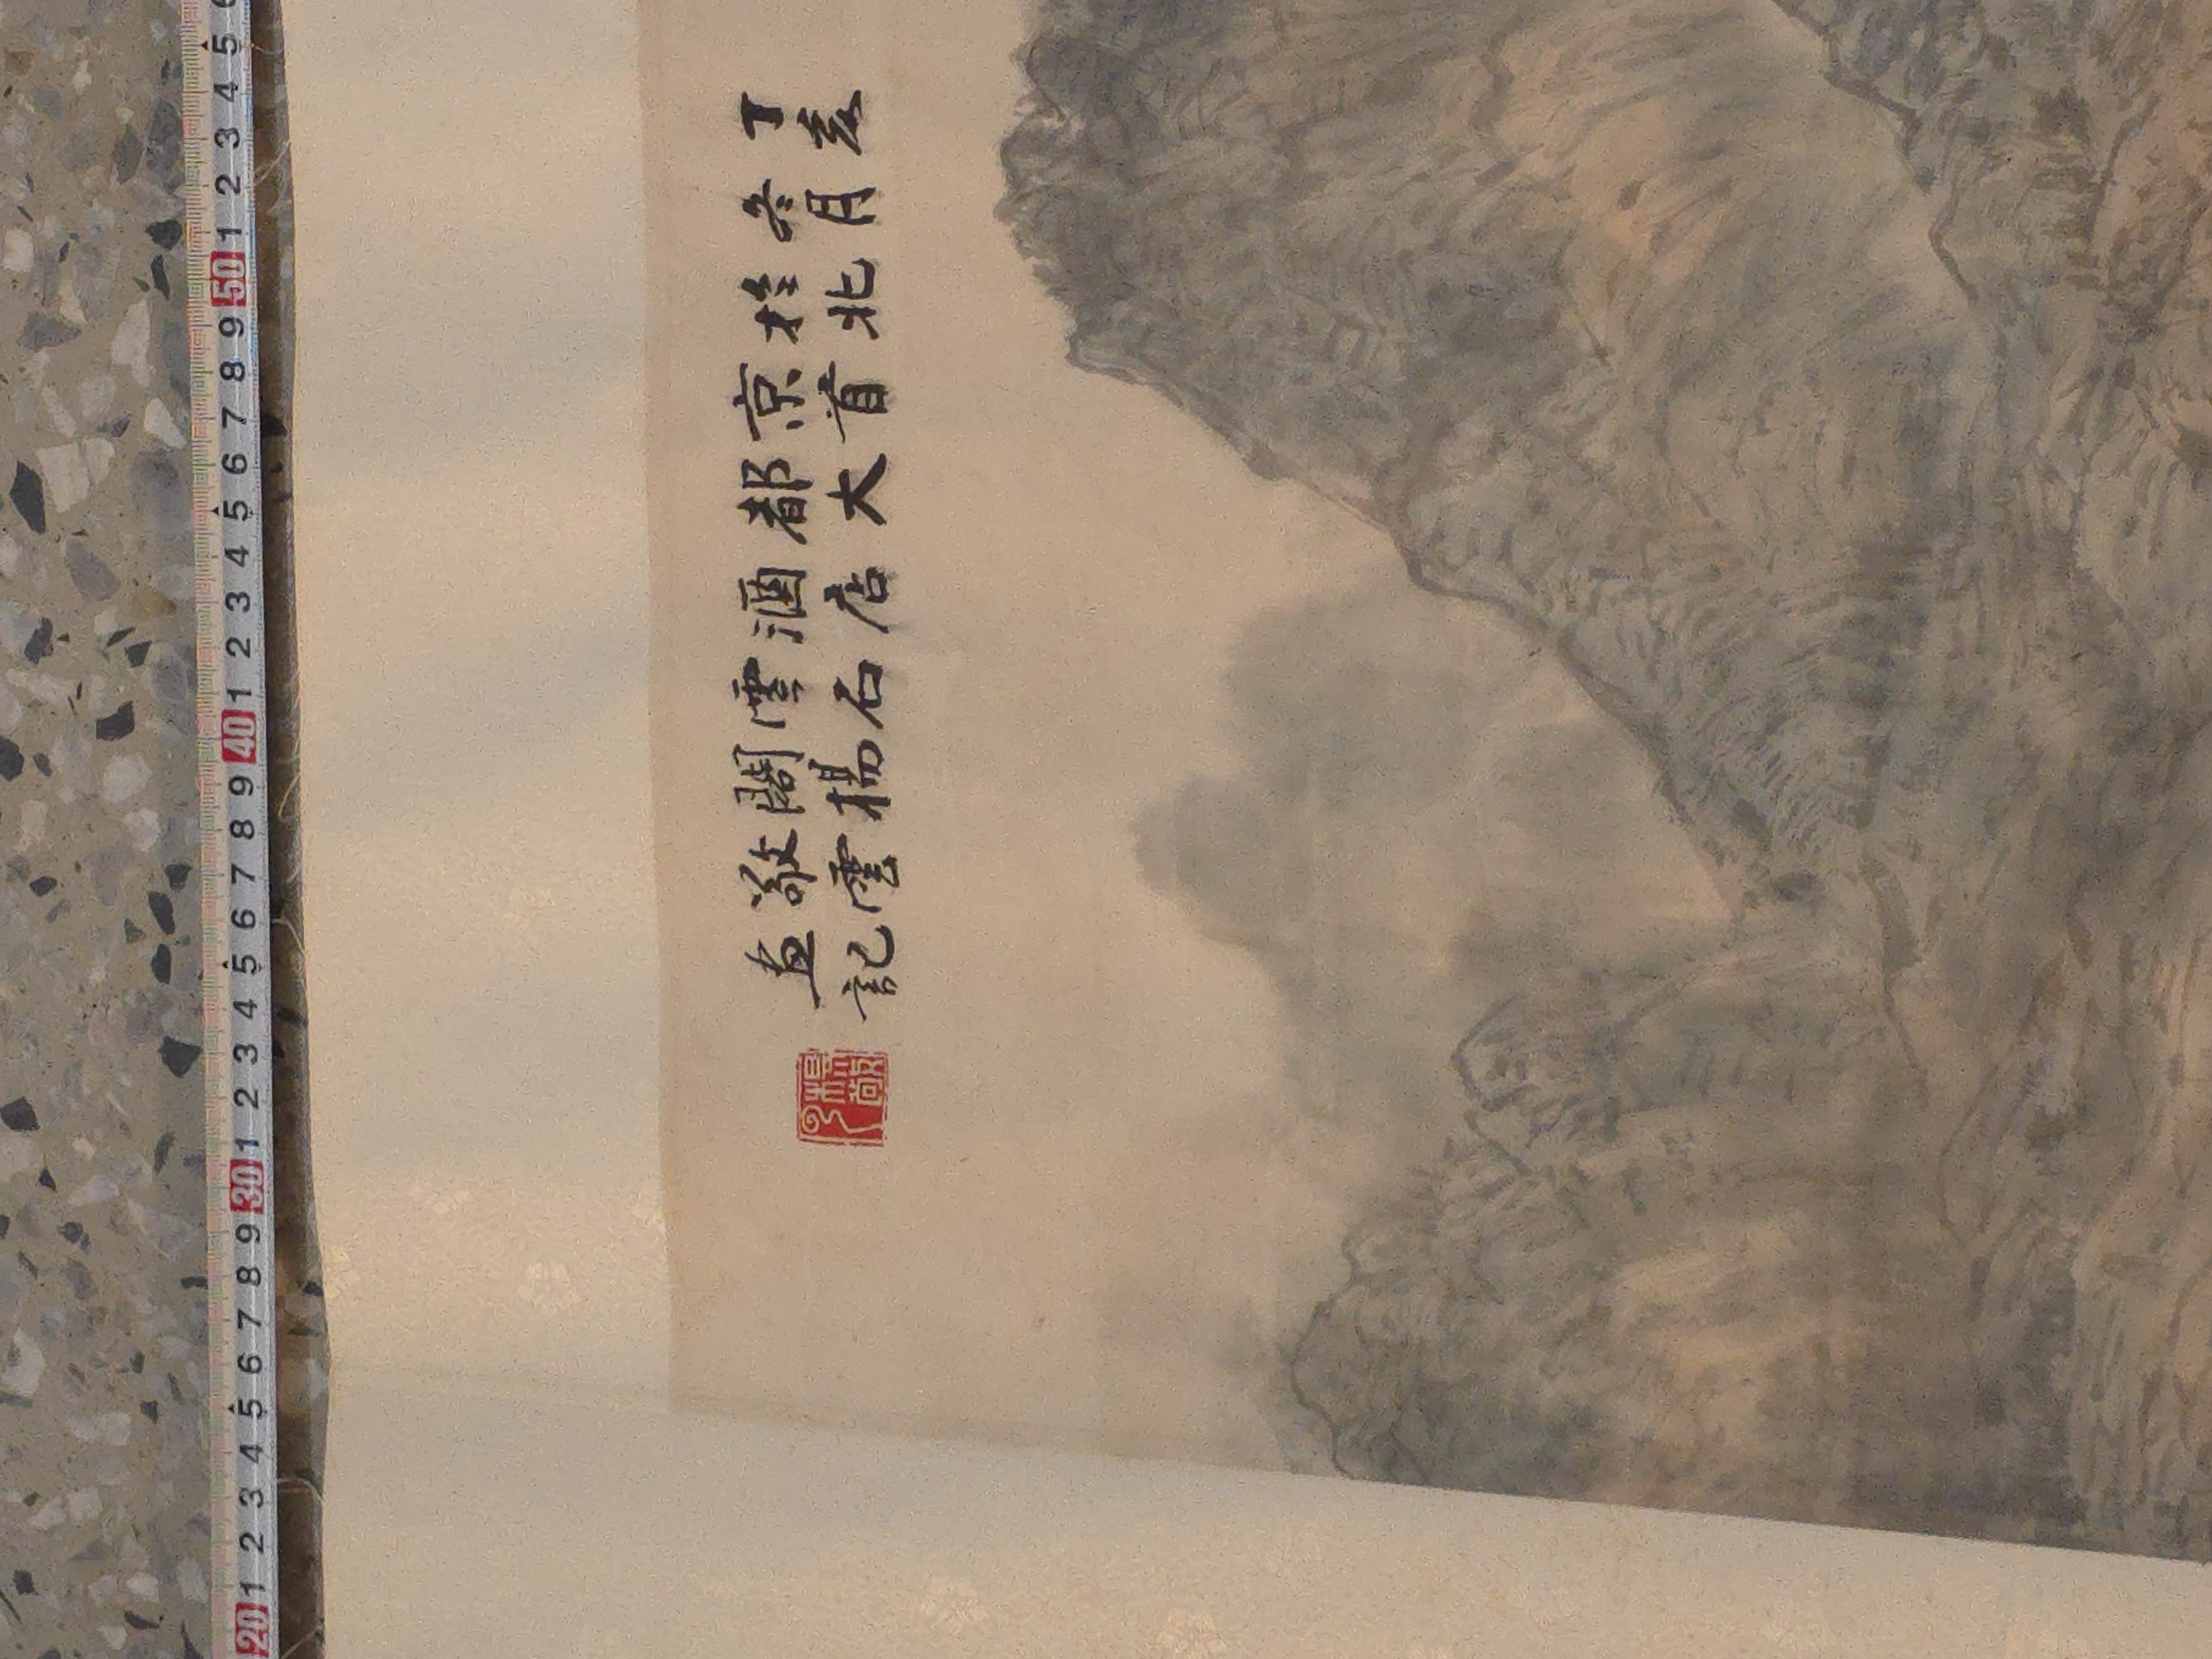 丁亥
冬月
於北
京首
都大
酒店
雲石
閣楊
敞雲
畫記
楊敞云
20 1 2 3 4 5 6 7 8 9 30 1 2 3 4 5 6 7 8 9 40 1 2 3 4 5 6 7 8 9 50 1 2 3 4 5